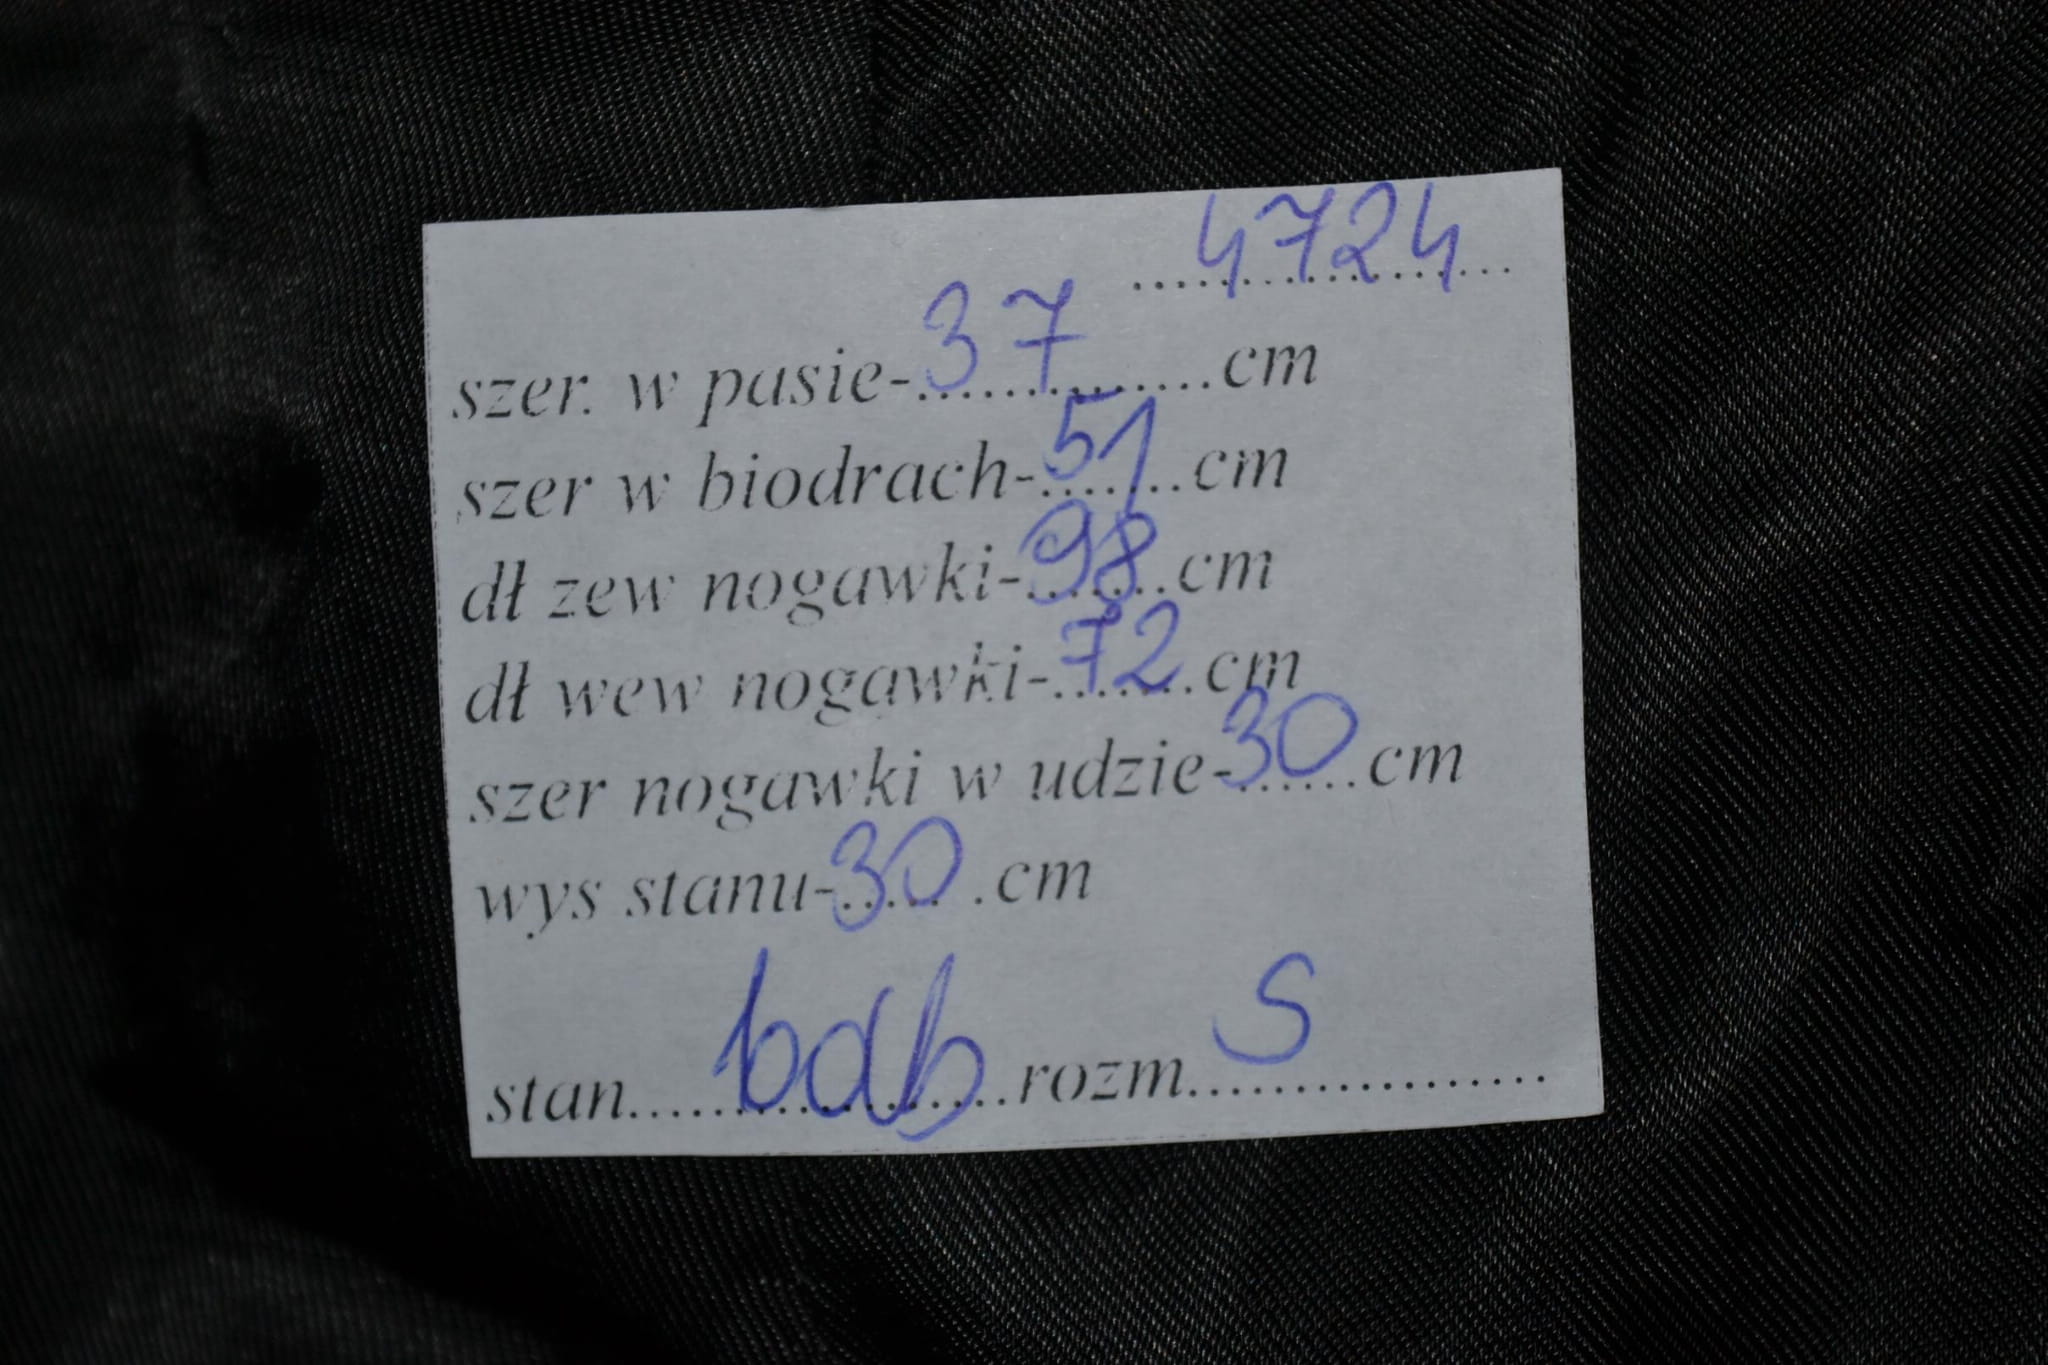 4724
szer. w pasie-37cm
szer w biodrach-51cm
dł zew nogawki-98cm
dł wew nogawki-72cm
szer nogawki w udzie-30cm
wys stanu-30.cm
stan....bdb....rozm....S....